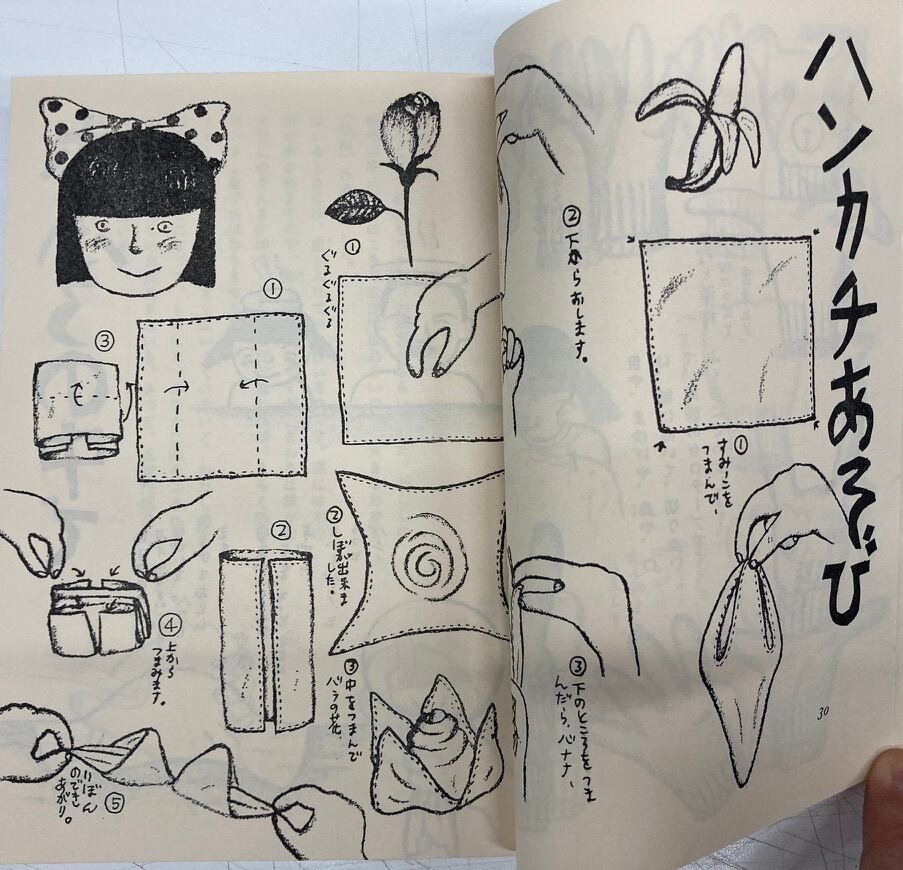 ハンカチあそび
①
すみ〜こを
つまんで、
②下からおします。
③下のところをつま
んだら、バナナ、
30
①
ぐるぐるぐる
②しぼが出来ま
した。
③中をつまんで
バラの花。
①
②
③
④上から
つまみます。
⑤
りぼん
のできあ
がり。